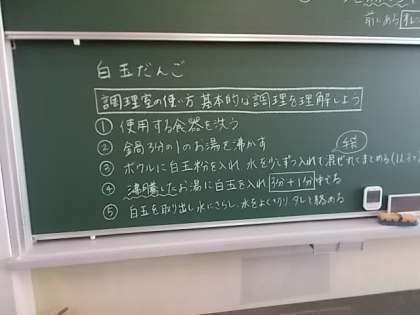 前にある
白玉だんご
調理室の使い方、基本的な調理を理解しよう
① 使用する食器を洗う
② 鍋3分の1のお湯を沸かす
手袋
③ ボウルに白玉粉を入れ、水を少しずつ入れて混ぜれてまとめる
④ 沸騰したお湯に白玉を入れ 3分+1分 ゆでる
⑤ 白玉を取り出し水にさらし、水をよくきりタレと絡める